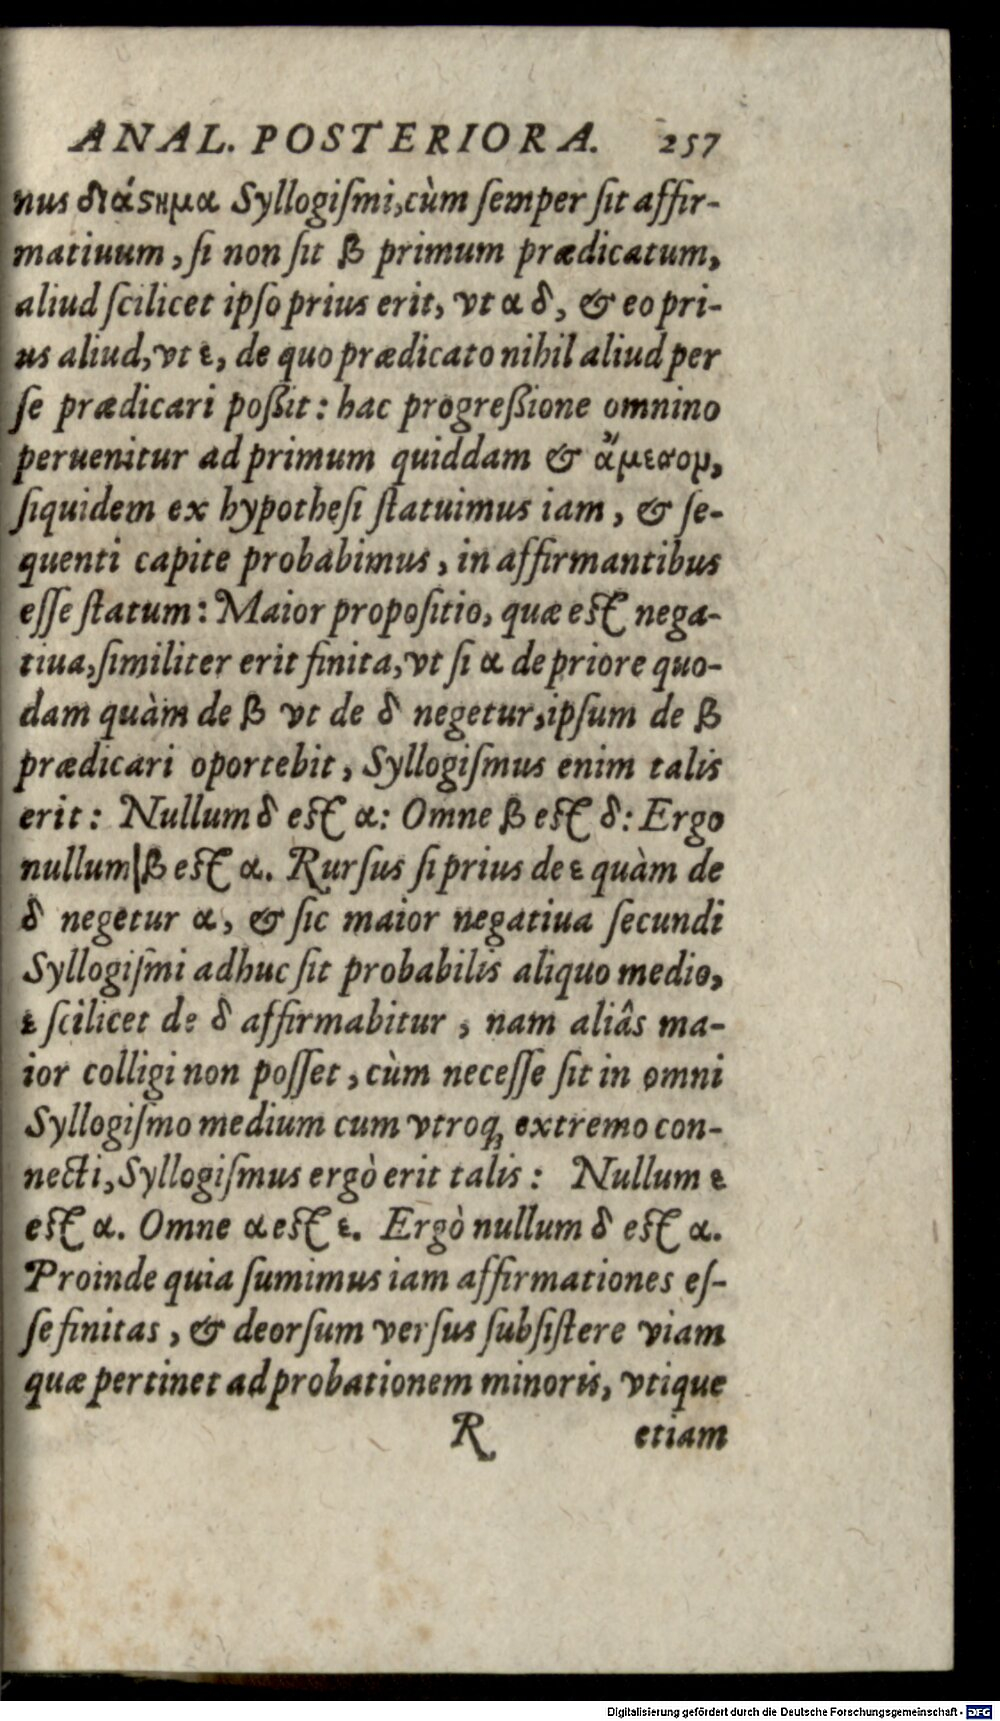 ANAL. POSTERIORA. 257
nus διάϛημα Syllogiſmi, cùm ſemper ſit affir-
matiuum, ſi non ſit β primum prædicatum,
aliud ſcilicet ipſo prius erit, vt α δ, & eo pri-
us aliud, vt ε, de quo prædicato nihil aliud per
ſe prædicari poßit: hac progreßione omnino
peruenitur ad primum quiddam & ἄμεσον,
ſiquidem ex hypotheſi ſtatuimus iam, & ſe-
quenti capite probabimus, in affirmantibus
eſſe ſtatum: Maior propoſitio, quæ eſt nega-
tiua, ſimiliter erit finita, vt ſi α de priore quo-
dam quàm de β vt de δ negetur, ipſum de β
prædicari oportebit, Syllogiſmus enim talis
erit: Nullum δ eſt α: Omne β eſt δ: Ergo
nullum β eſt α. Rurſus ſi prius de ε quàm de
δ negetur α, & ſic maior negatiua ſecundi
Syllogiſmi adhuc ſit probabilis aliquo medio,
ε ſcilicet de δ affirmabitur, nam aliâs ma-
ior colligi non poſſet, cùm neceſſe ſit in omni
Syllogiſmo medium cum vtroq́ꝫ extremo con-
necti, Syllogiſmus ergò erit talis: Nullum ε
eſt α. Omne α eſt ε. Ergò nullum δ eſt α.
Proinde quia ſumimus iam affirmationes eſ-
ſe finitas, & deorſum verſus ſubſiſtere viam
quæ pertinet ad probationem minoris, vtique
R etiam
Digitalisierung gefördert durch die Deutsche Forschungsgemeinschaft - DFG